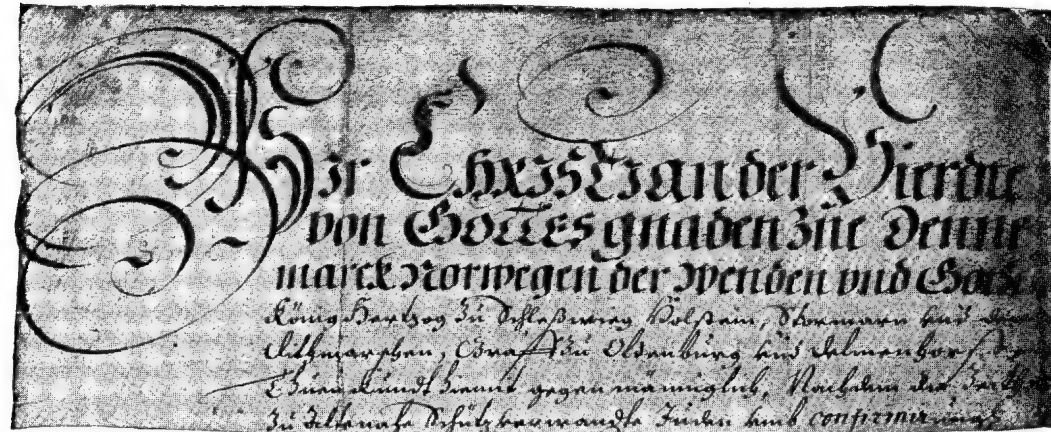 Wir Christian der Vierdte
von Gottes gnaden zue Denne
marck Norwegen der Wenden vnd
König Hertzog zu Schleßwieg Holstein, Stormarn vnd der
Dithmarschen, Graff zu Oldenburg vnd Delmenhorst,
Thuen kundt hiemit gegen männiglich, Nachdem die
zu Altenahe Schutzverwandte Juden vmb confirmirung